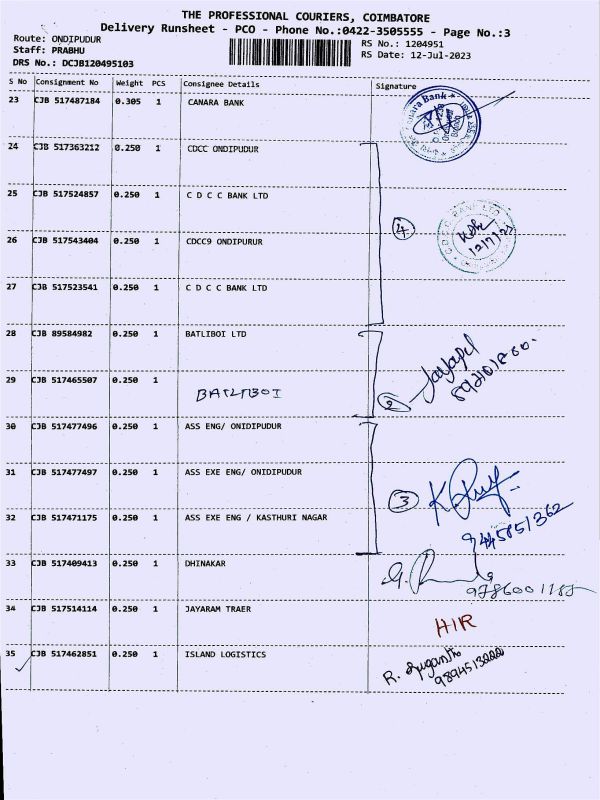 THE PROFESSIONAL COURIERS, COIMBATORE
Delivery Runsheet - PCO - Phone No.:0422-3505555 - Page No.:3
Route: ONDIPUDUR RS No.: 1204951
Staff: PRABHU RS Date: 12-Jul-2023
DRS No.: DCJB120495103
S No Consignment No Weight PCS Consignee Details Signature
23 CJB 517487184 0.305 1 CANARA BANK
24 CJB 517363212 0.250 1 CDCC ONDIPUDUR
25 CJB 517524857 0.250 1 C D C C BANK LTD
4
12/7/23
26 CJB 517543404 0.250 1 CDCC9 ONDIPURUR
27 CJB 517523541 0.250 1 C D C C BANK LTD
28 CJB 89584982 0.250 1 BATLIBOI LTD
29 CJB 517465507 0.250 1 BATLIBOI
2
30 CJB 517477496 0.250 1 ASS ENG/ ONDIPUDUR
31 CJB 517477497 0.250 1 ASS EXE ENG/ ONDIPUDUR
3
32 CJB 517471175 0.250 1 ASS EXE ENG / KASTHURI NAGAR
9445851362
33 CJB 517409413 0.250 1 DHINAKAR
34 CJB 517514114 0.250 1 JAYARAM TRAER
HIR
35 CJB 517462851 0.250 1 ISLAND LOGISTICS